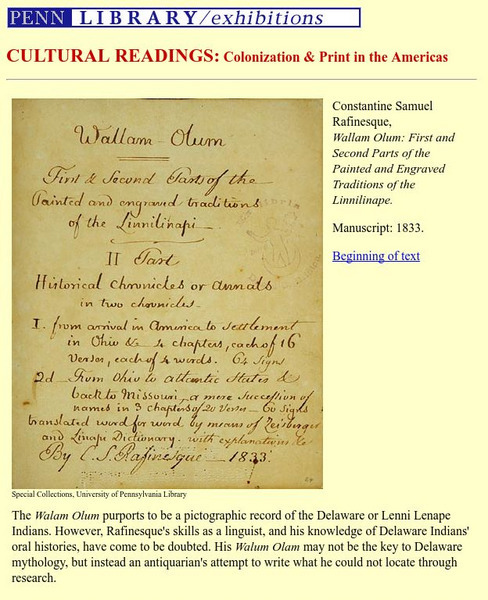 PENN LIBRARY/exhibitions
CULTURAL READINGS: Colonization & Print in the Americas
Wallam-Olum
First & Second Parts of the
Painted and engraved traditions
of the Linnilinapi
II Part
Historical Chronicles or annals
in two chronicles
I. from arrival in America to settlement
in Ohio &c 4 chapters, each of 16
Verses, each of 4 words. 64 Signs
2d From Ohio to atlantic States &
back to Missouri, a mere Succession of
names in 3 chapters of 20 Verses - 60 signs
translated word for word by means of Zeisberger
and Linapi Dictionary. with explanations &c
By C. S. Rafinesque 1833.
Constantine Samuel
Rafinesque,
Walam Olum: First and
Second Parts of the
Painted and Engraved
Traditions of the
Linnilinape.
Manuscript: 1833.
Beginning of text
Special Collections, University of Pennsylvania Library
The Walam Olum purports to be a pictographic record of the Delaware or Lenni Lenape
Indians. However, Rafinesque's skills as a linguist, and his knowledge of Delaware Indians'
oral histories, have come to be doubted. His Walum Olam may not be the key to Delaware
mythology, but instead an antiquarian's attempt to write what he could not locate through
research.